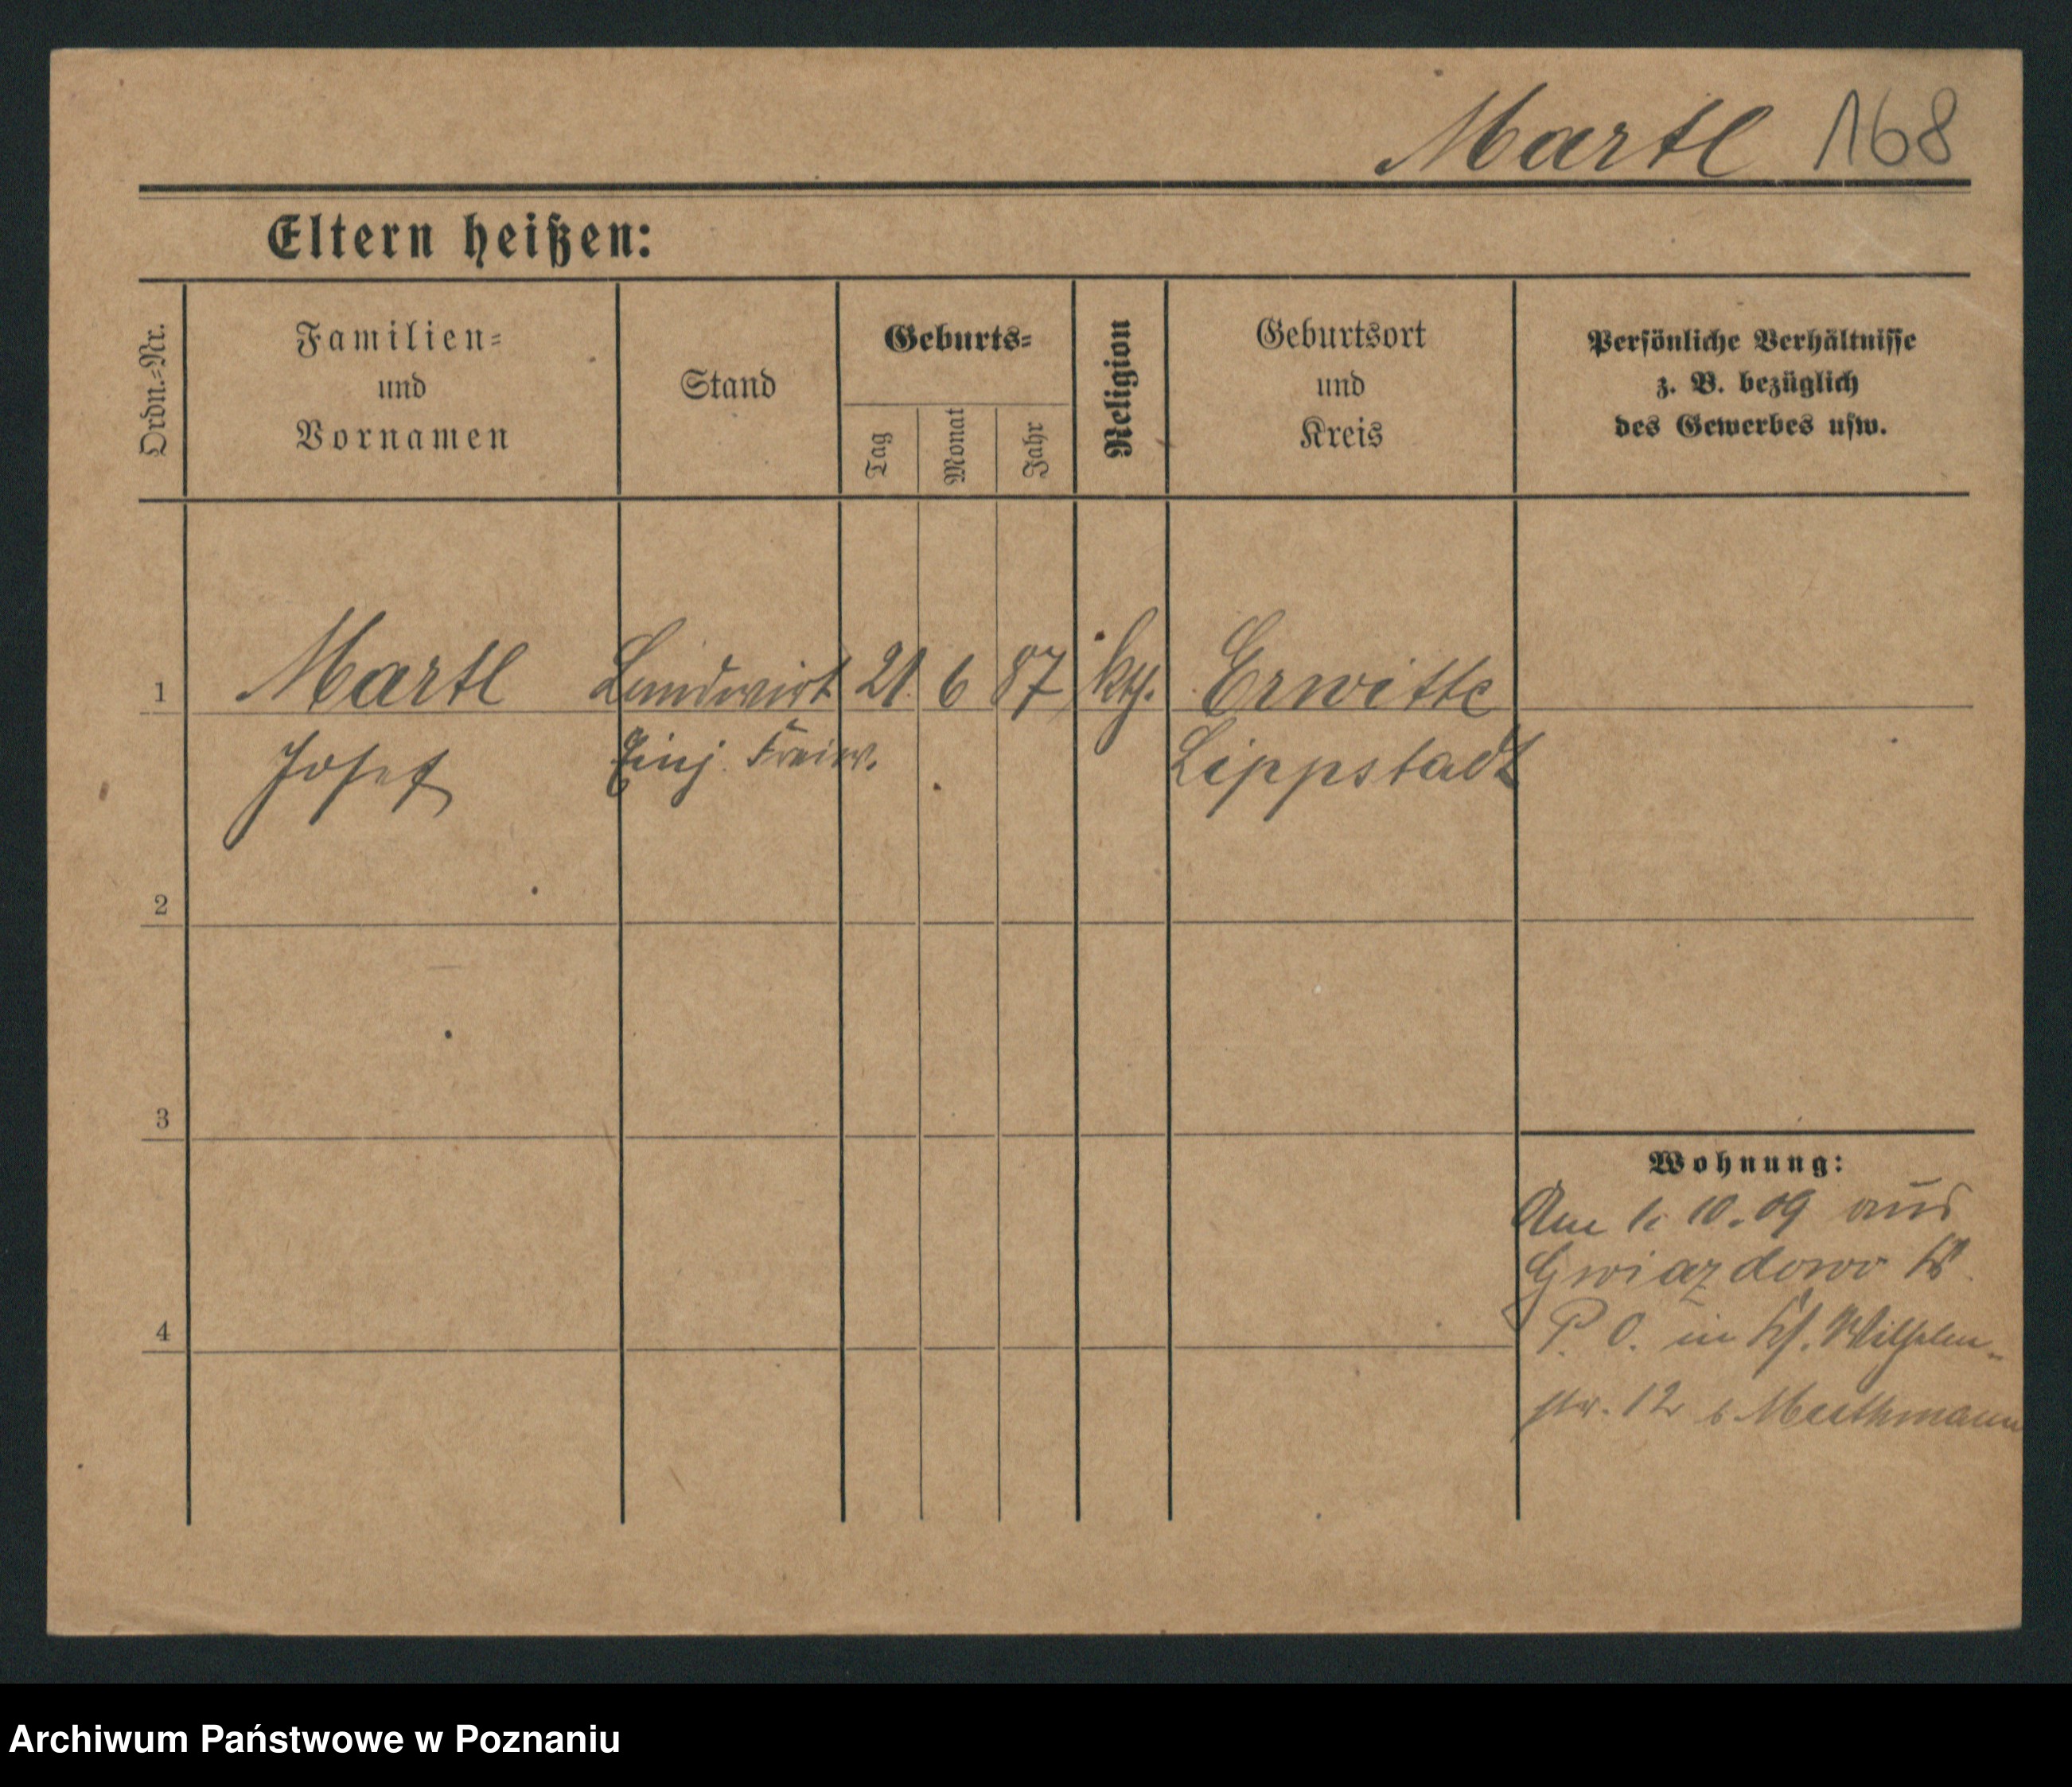 Martl 168
Eltern heißen:
Ordn.=Nr.
Familien=
und
Vornamen
Stand
Geburts=
Tag
Monat
Jahr
Religion
Geburtsort
und
Kreis
Persönliche Verhältnisse
z. B. bezüglich
des Gewerbes usw.
1 Martl Landwirt 21. 6 87 kth. Erwitte
Josef Einj. Freiw. Lippstadt
2
3
4
Wohnung:
Am 1. 10. 09 aus
Gwiazdowo
P. O. in Wilhelm-
str. 12 b
Archiwum Państwowe w Poznaniu